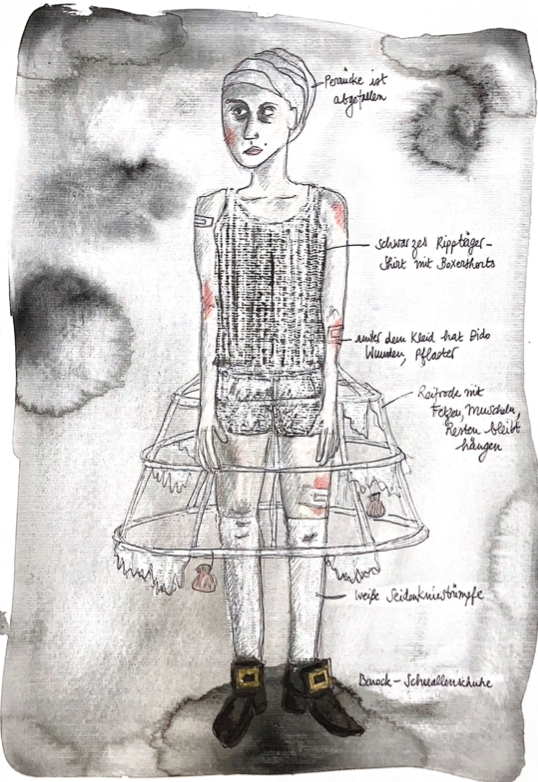 Perücke ist
abgefallen
schwarzes Ripp träger-
Shirt mit Boxershorts
unter dem Kleid hat Dido
Wunden, Pflaster
Reifrock mit
Fetzen, Muscheln,
Resten bleibt
hängen
weiße Seidenkniestrümpfe
Barock-Schnallenschuhe